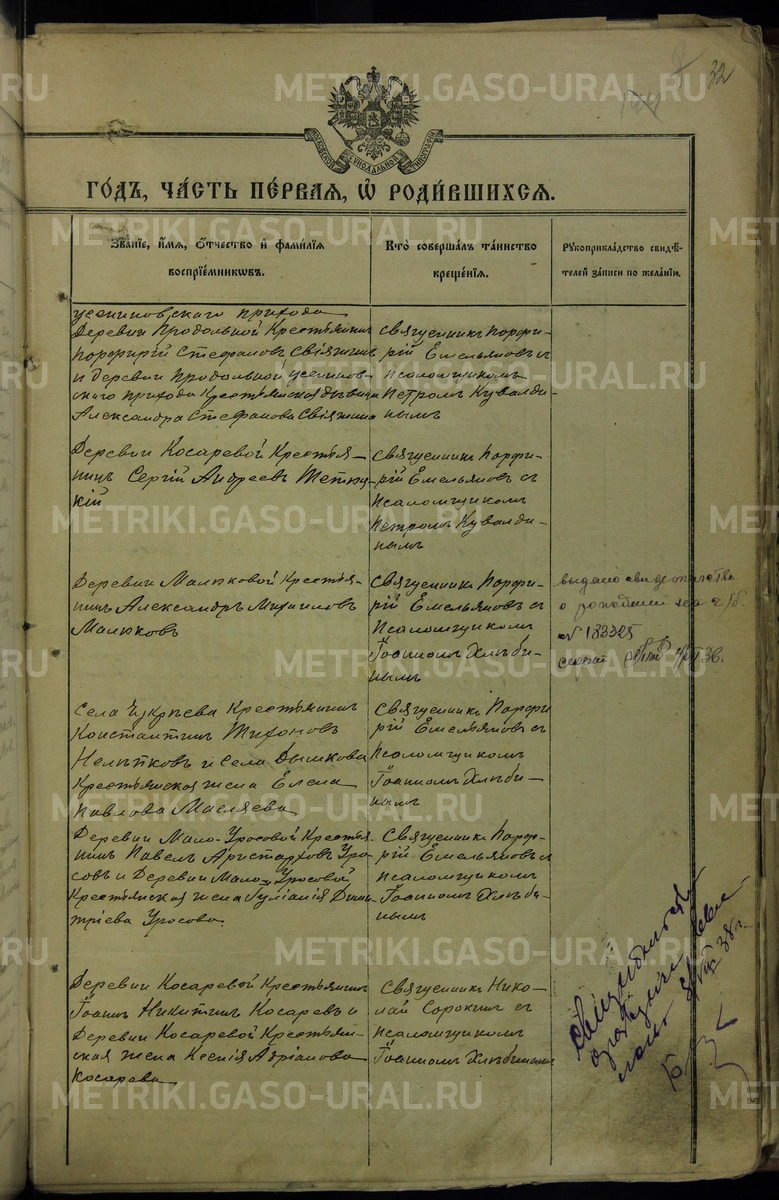 32
МОСКОВСКОЙ СИНОДАЛЬНОЙ ТИПОГРАФІИ
ГО́ДЪ, ЧА́СТЬ ПЕ́РВАЯ, Ѡ҆ РОДИ́ВШИХСЯ.
Зва́нїе, и҆́мя, ѻ҆́тчество и҆ фами́лїя
воспрїе́мникѡвъ.
Кто̀ соверша́лъ та́инство
креще́нїя.
Рукоприкла́дство свидѣ́-
телей за́писи по жела́нїю.
прихода
Деревни Продольной Крестьянинъ
Порфирій Стефановъ Свіяжинъ
и деревни Продольной
скаго прихода Крестьянская дѣвица
Александра Стефанова Свіяжина
Священникъ Порфи-
рій Емельяновъ съ
псаломщикомъ
Петромъ Кувалди-
нымъ
Деревни Косаревой Крестья-
нинъ Сергій Андреевъ
кій
Священникъ Порфи-
рій Емельяновъ съ
Псаломщикомъ
Петромъ Кувалди-
нымъ
Деревни Малюковой Крестья-
нинъ Александръ Михаиловъ
Малюковъ
Священникъ Порфи-
рій Емельяновъ съ
Псаломщикомъ
Іоанномъ Хлѣби-
нымъ
выдано свидетельство
о рождении
№ 183325
Села Крестьянинъ
Константинъ Тихоновъ
и села Дымкова
Крестьянская жена Елена
Павлова Масляева
Священникъ Порфи-
рій Емельяновъ съ
Псаломщикомъ
Іоанномъ Хлѣби-
нымъ
Деревни Мало-Уросовой Крестья-
нинъ Павелъ Аристарховъ Уро-
совъ и Деревни Мало-Уросовой
Крестьянская жена Іуліанія Дими-
тріева Уросова
Священникъ Порфи-
рій Емельяновъ съ
Псаломщикомъ
Іоанномъ Хлѣби-
нымъ
Деревни Косаревой Крестьянинъ
Іоаннъ Никитинъ Косаревъ и
Деревни Косаревой Крестьян-
ская жена Ксенія Адріанова
Косарева
Священникъ Нико-
лай Сорокинъ съ
Псаломщикомъ
Іоанномъ Хлѣбинымъ
METRIKI.GASO-URAL.RU